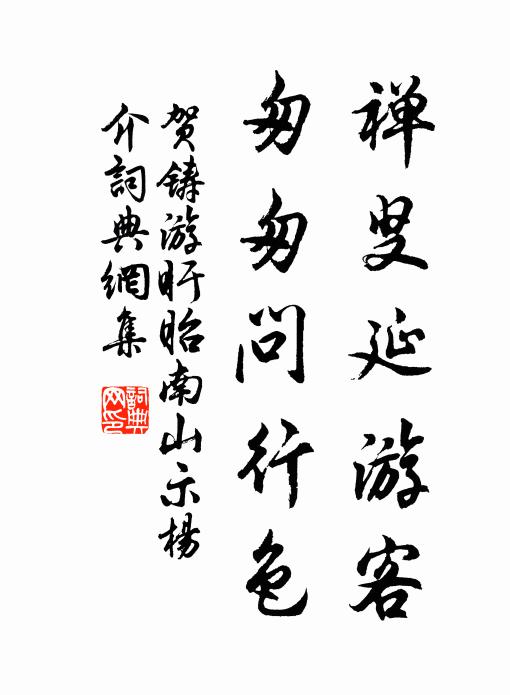 禅叟延游客
匆匆问行色
贺铸游盱眙南山示杨
介詞典網集
詞典网印